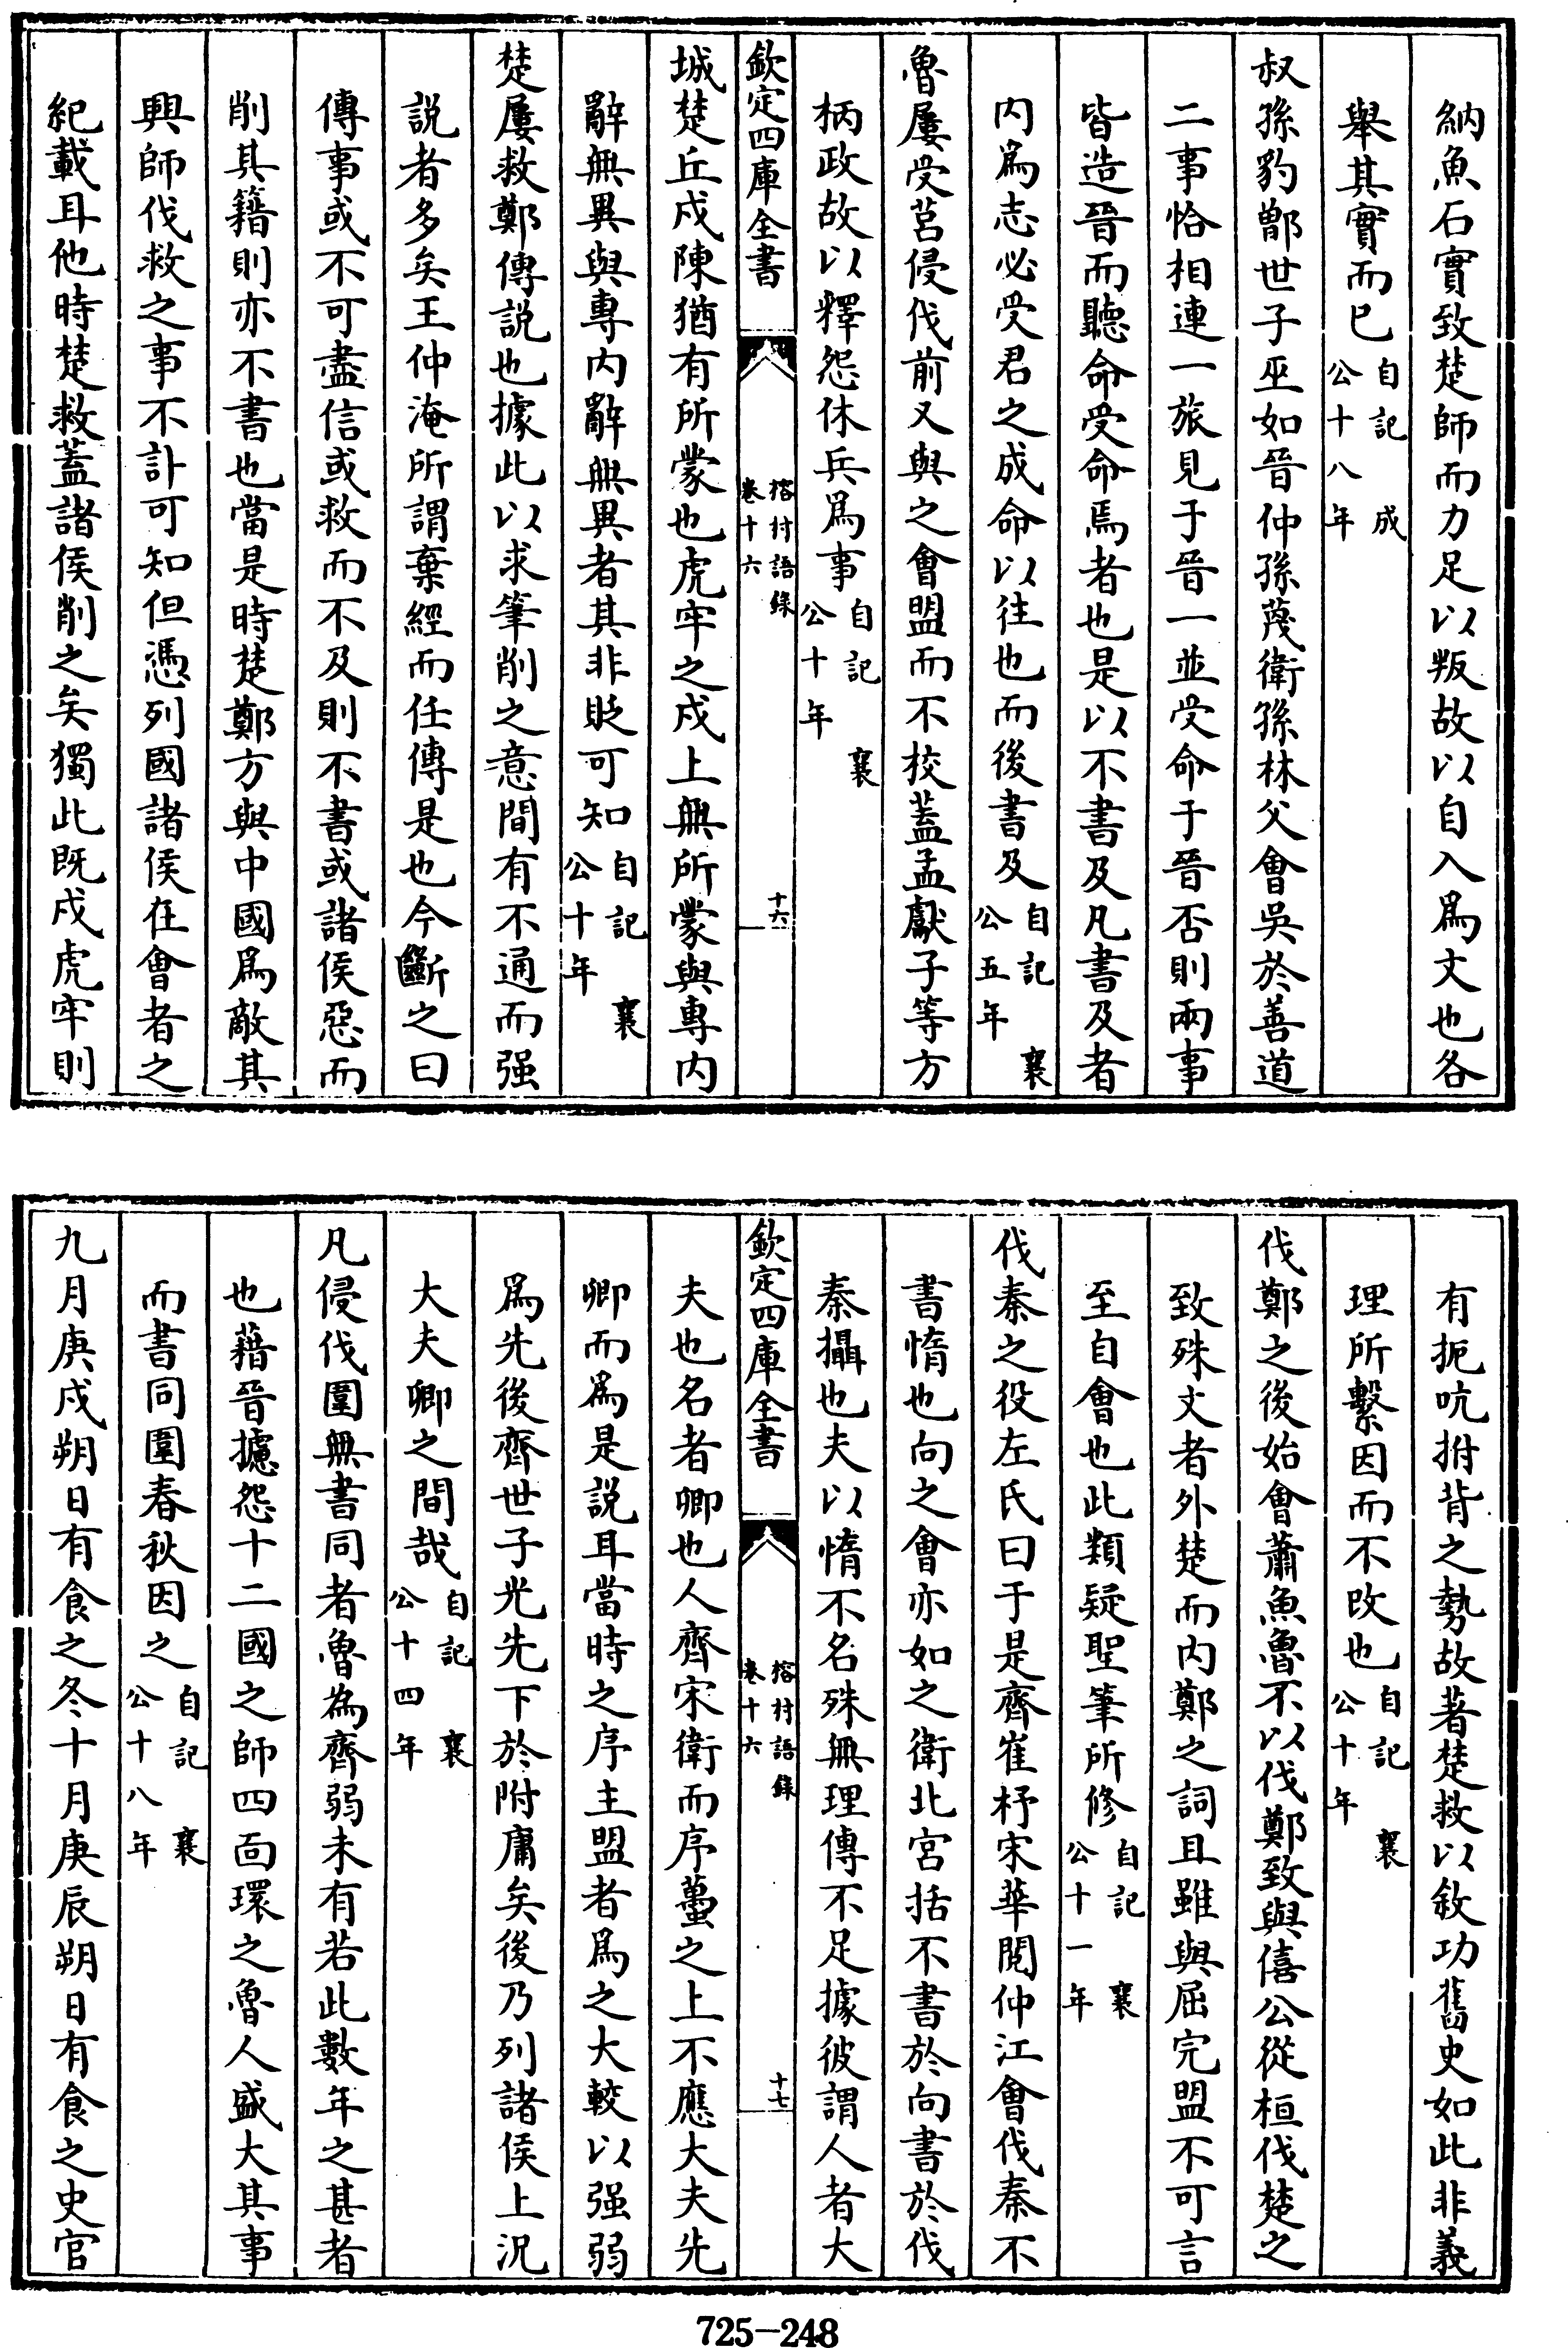 納魚石實致楚師而力足以叛故以自入爲文也各
舉其實而已自記成公十八年
叔孫豹鄫世子巫如晉仲孫蔑衛孫林父會吳於善道
二事恰相連一旅見于晉一並受命于晉否則兩事
皆造晉而聽命受命焉者也是以不書及凡書及者
内爲志必受君之成命以往也而後書及自記襄公五年
魯屢受莒侵伐前又與之會盟而不校蓋孟獻子等方
柄政故以釋怨休兵爲事自記襄公十年
欽定四庫全書 榕村語錄卷十六 十六
城楚丘戍陳猶有所蒙也虎牢之戍上無所蒙與專内
辭無異與專内辭無異者其非貶可知自記襄公十年
楚屢救鄭傳説也據此以求筆削之意間有不通而强
説者多矣王仲淹所謂棄經而任傳是也今斷之曰
傳事或不可盡信或救而不及則不書或諸侯惡而
削其籍則亦不書也當是時楚鄭方與中國爲敵其
興師伐救之事不訃可知但憑列國諸侯在會者之
紀載耳他時楚救蓋諸侯削之矣獨此既戍虎牢則
有扼吭拊背之勢故著楚救以敘功舊史如此非義
理所繫因而不改也自記襄公十年
伐鄭之後始會蕭魚魯不以伐鄭致與僖公從桓伐楚之
致殊文者外楚而内鄭之詞且雖與屈完盟不可言
至自會也此類疑聖筆所修自記襄公十一年
伐秦之役左氏曰于是齊崔杼宋華閱仲江會伐秦不
書惰也向之會亦如之衛北宮括不書於向書於伐
秦攝也夫以惰不名殊無理傳不足據彼謂人者大
欽定四庫全書 榕村語錄卷十六 十七
夫也名者卿也人齊宋衛而序蠆之上不應大夫先
卿而爲是説耳當時之序主盟者爲之大較以强弱
爲先後齊世子光先下於附庸矣後乃列諸侯上況
大夫卿之間哉自記襄公十四年
凡侵伐圍無書同者魯為齊弱未有若此數年之甚者
也藉晉攄怨十二國之師四面環之魯人盛大其事
而書同圍春秋因之自記襄公十八年
九月庚戌朔日有食之冬十月庚辰朔日有食之史官
725-248